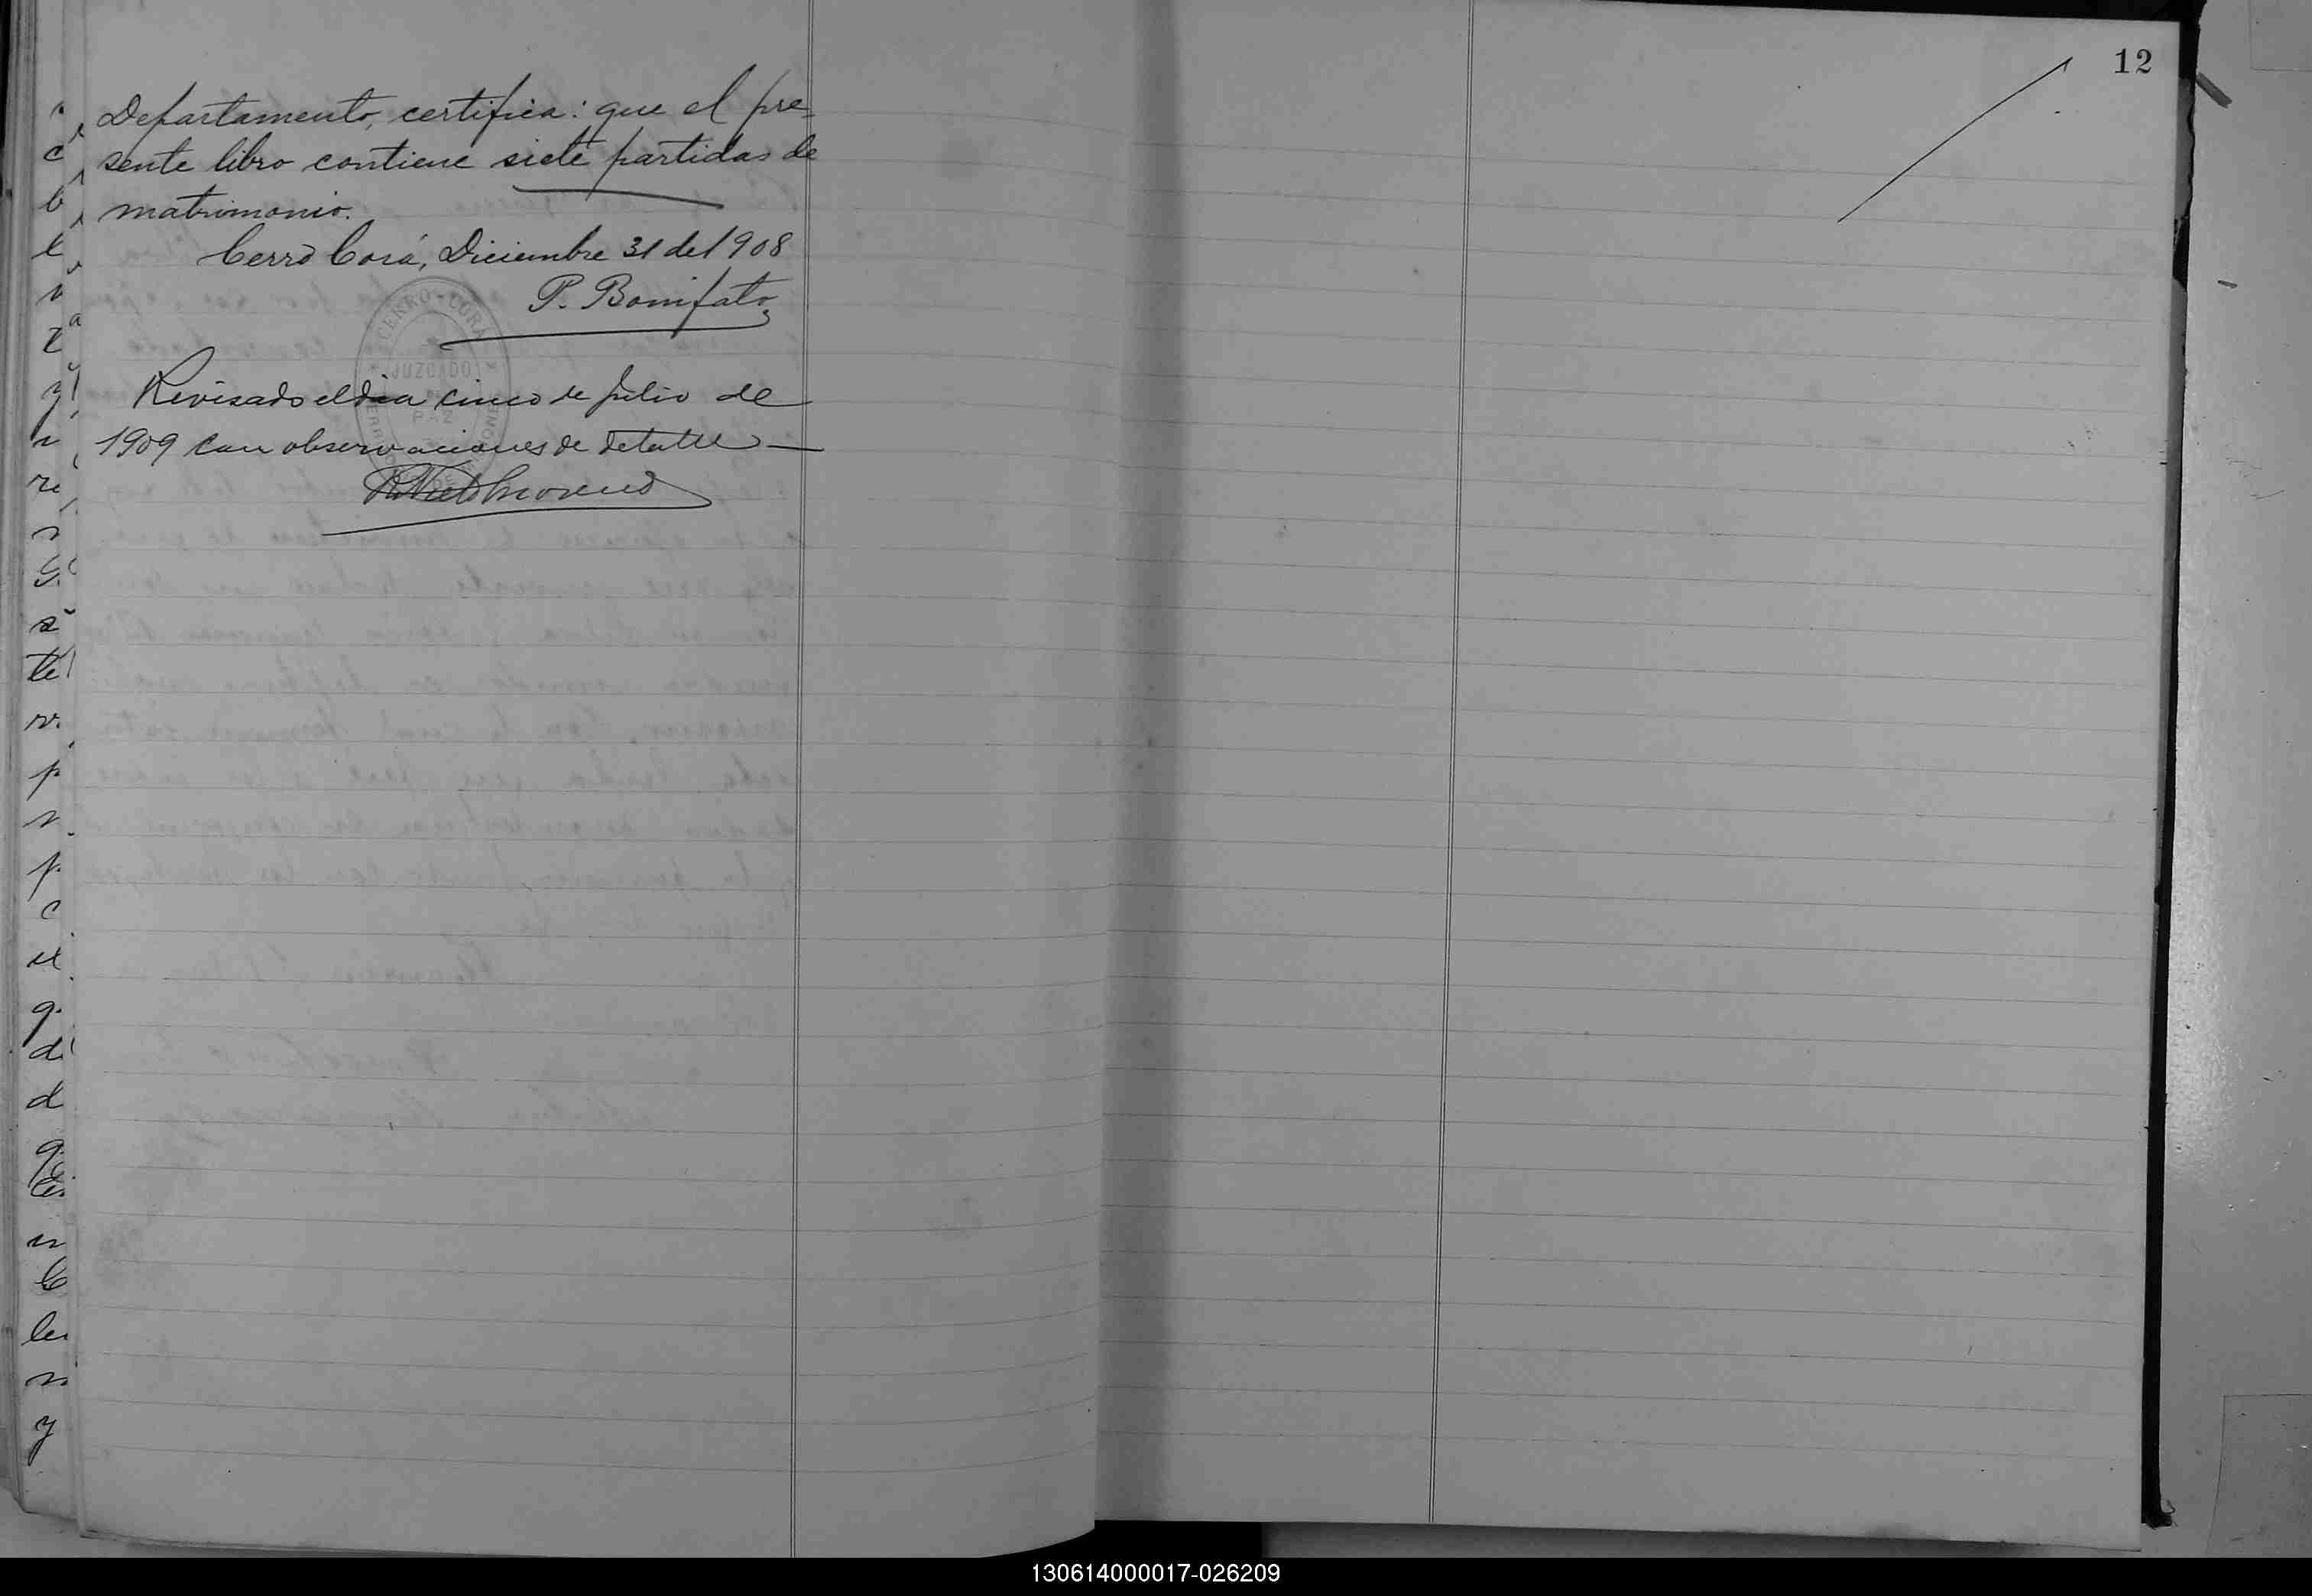 Departamento, certifica: que el pre-
sente libro contiene siete partidas de
matrimonio.
Cerro Corá, Diciembre 31 de 1908
P. Bonifato
CERRO-CORA
JUZGADO
DE
PAZ
Revisado el dia cinco de Julio de
1909 con observaciones de detalle
12
130614000017-026209